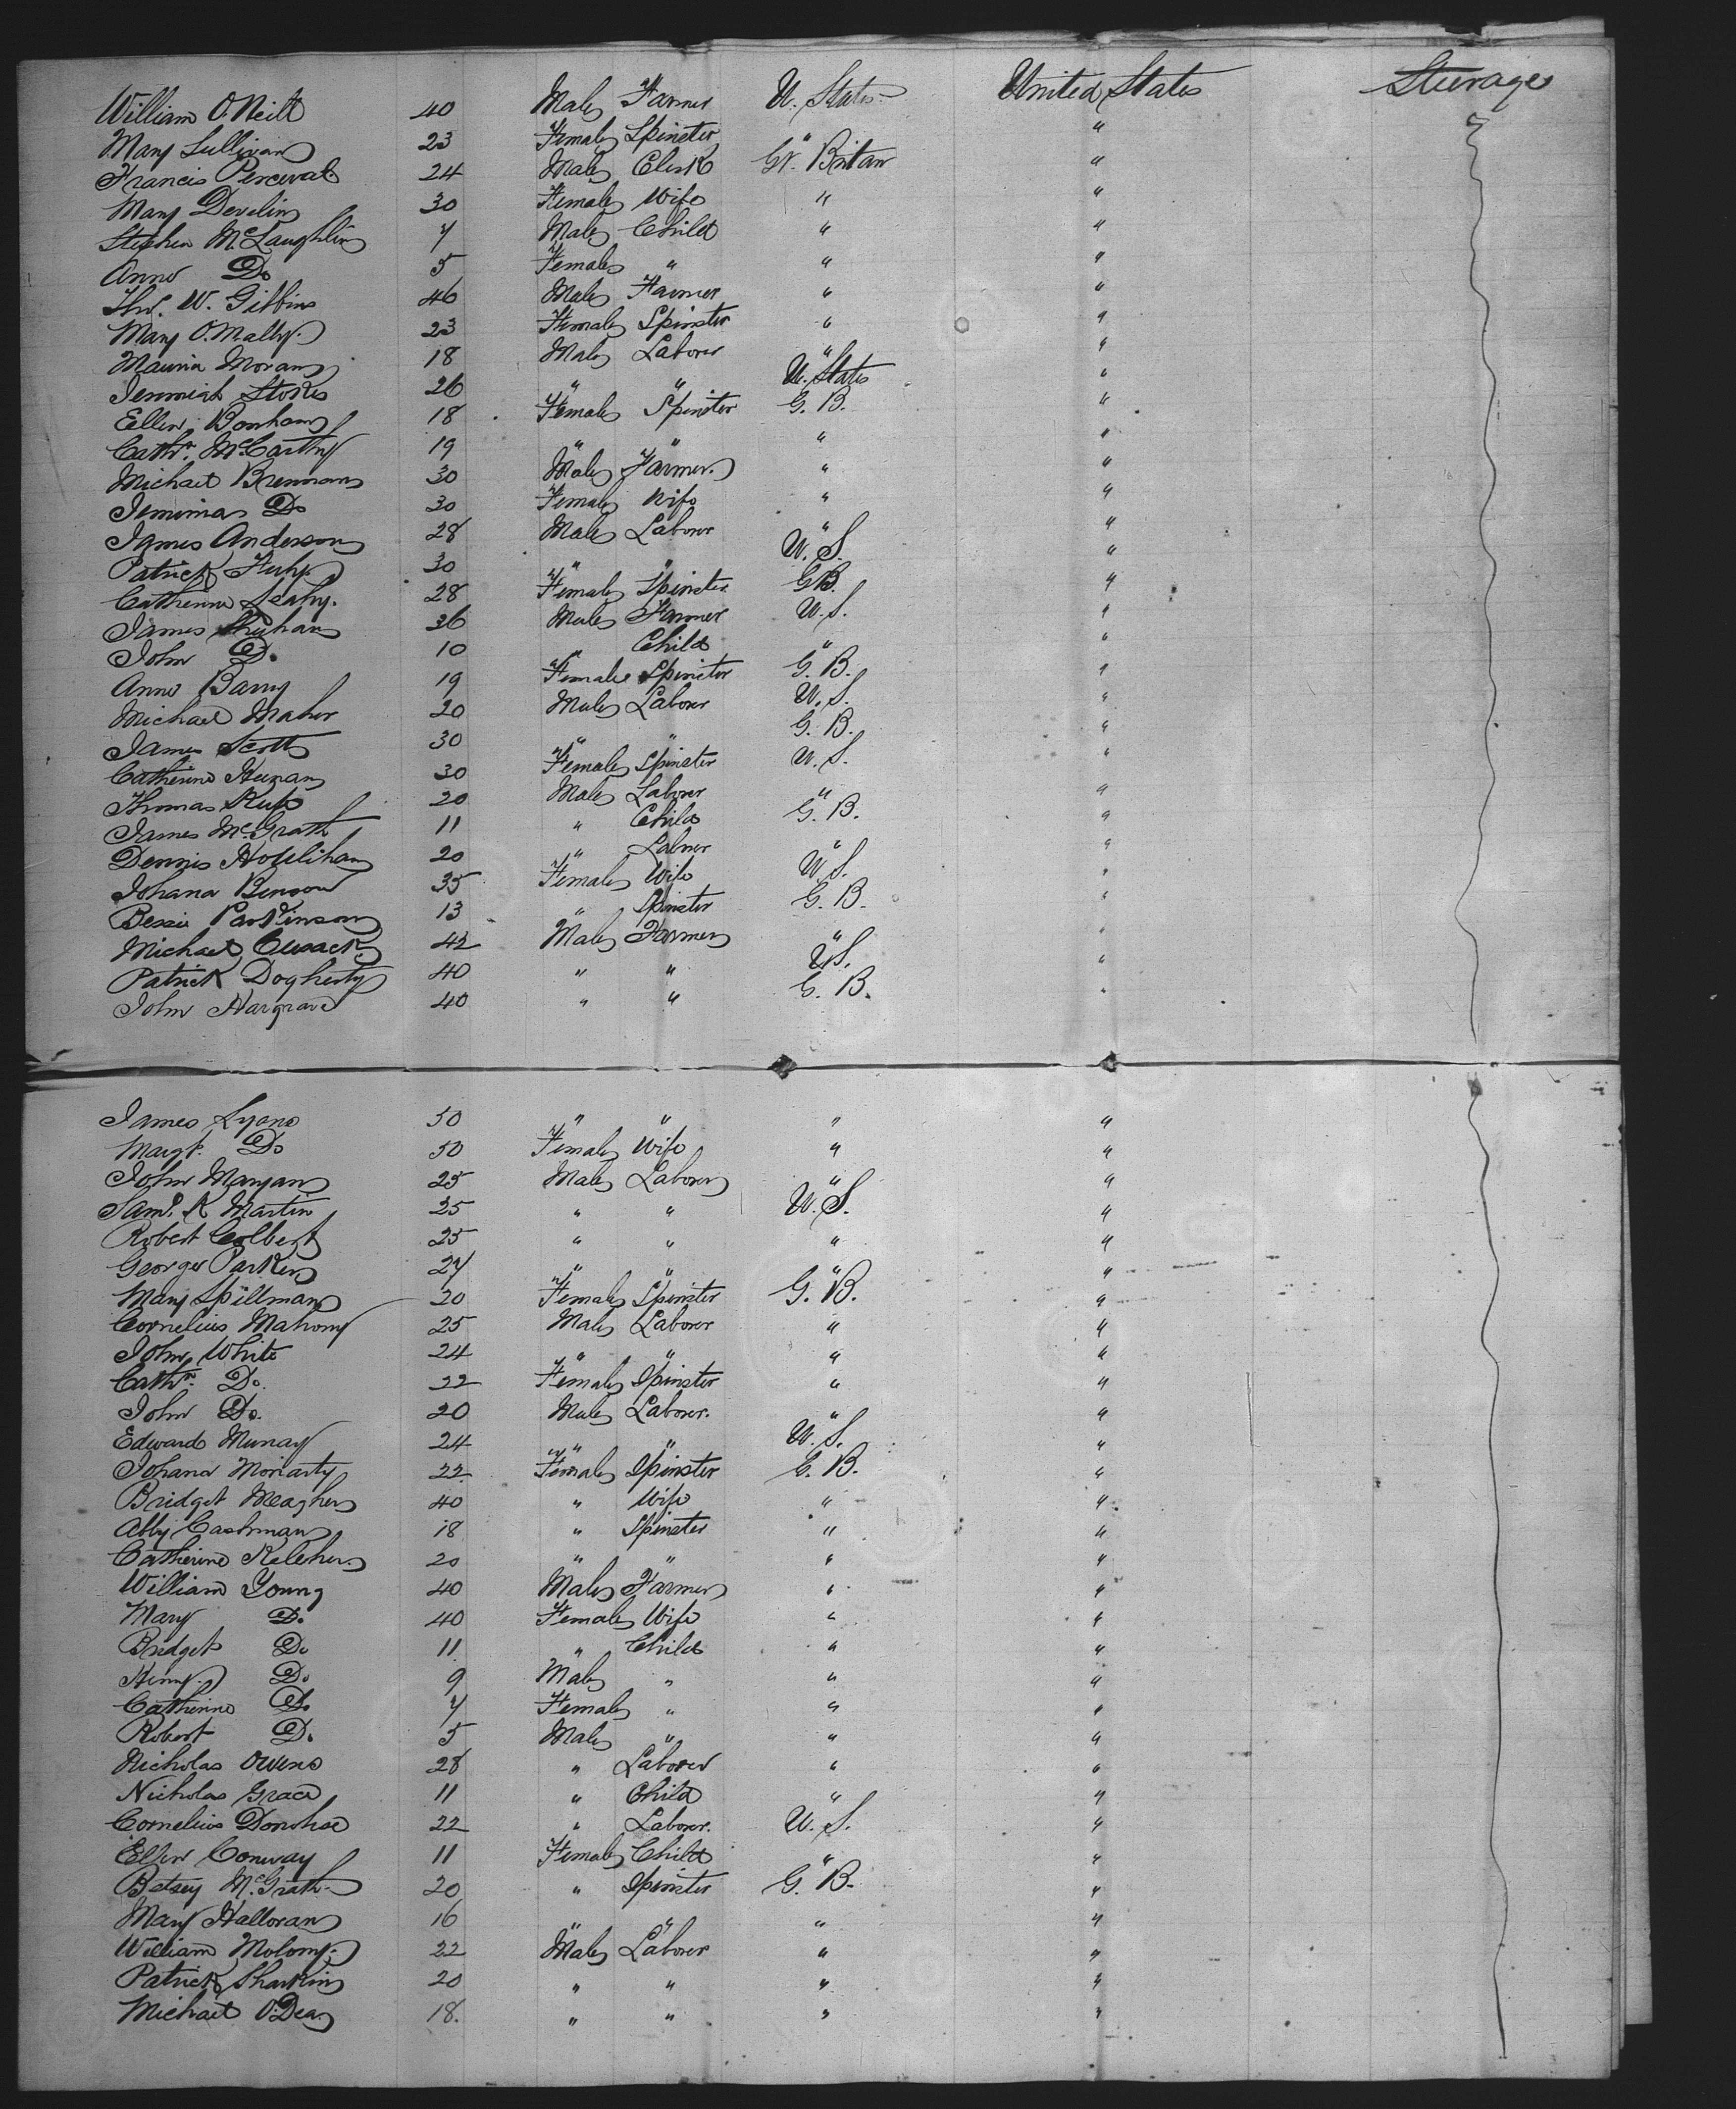 William O.Neill 40 Male Farmer U. States United States Steerage
Mary Sullivan 23 Female Spinster " "
Francis Perceval 24 Male Clerk Gt. Britan "
Mary Develin 30 Female Wife " "
Stephen McLaughlin 7 Male Child " "
Anne Do 5 Female " " "
Thos. W. Gibbins 46 Male Farmer " "
Mary O.Mally 23 Female Spinster " "
Maurice Moran 18 Male Laborer " "
Jeremiah Stokes 26 " " U. States "
Ellen Bonham 18 Female Spinster G. B. "
Cathn. McCarthy 19 " " " "
Michael Brennan 30 Male Farmer " "
Jemima Do 30 Female Wife " "
James Anderson 28 Male Laborer " "
Patrick 30 " " U. S. "
Catherine Leahy. 28 Female Spinster G B. "
James Sheehan 36 Male Farmer U. S. "
John Do. 10 " Child " "
Anne Barry 19 Female Spinster G. B. "
Michael Maher 20 Male Laborer U. S. "
James Scott 30 " " G. B. "
Catherine 30 Female Spinster U. S. "
Thomas 20 Male Laborer " "
James McGrath 11 " Child G. B. "
Dennis Houlihan 20 " Laborer " "
Johana Benson 35 Female Wife U. S. "
Bessie Parkinson 13 " Spinster G. B. "
Michael Cusack 42 Male Farmer " "
Patrick Dogherty 40 " " U S. "
John Hargrave 40 " " G. B. "
James Lyons 50 " " " "
Margt. Do 50 Female Wife " "
John Mangan 25 Male Laborer " "
Saml. R Martin 25 " " U. S. "
Robert Colbert 25 " " " "
George Parker 27 " " " "
Mary Spillman 20 Female Spinster G. B. "
Cornelius Mahony 25 Male Laborer " "
John White 24 " " " "
Cathn. Do. 22 Female Spinster " "
John Do. 20 Male Laborer. " "
Edward Murray 24 " " U. S. "
Johana Moriarty 22 Female Spinster G. B. "
Bridget Meagher 40 " Wife " "
Abby Cashman 18 " Spinster " "
Catherine Keleher 20 " " " "
William Young 40 Male Farmer " "
Mary Do. 40 Female Wife " "
Bridget Do 11 " Child " "
Henry Do 9 Male " " "
Catherine Do 7 Female " " "
Robert Do. 5 Male " " "
Nicholas Owens 28 " Laborer " "
Nicholas Grace 11 " Child " "
Cornelius Donohoe 22 " Laborer. U. S. "
Ellen Conway 11 Female Child " "
Betsey McGrath 20 " Spinster G. B. "
Mary Halloran 16 " " " "
William Molony 22 Male Laborer " "
Patrick Sharkin 20 " " " "
Michael O.Dea 18. " " " "